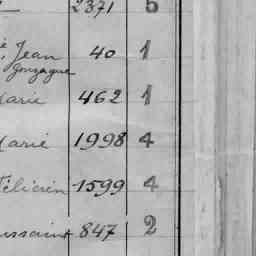 2371 5
Jean 40 1
Gonzague
Marie 462 1
Marie 1998 4
Félicien 1599 4
847 2